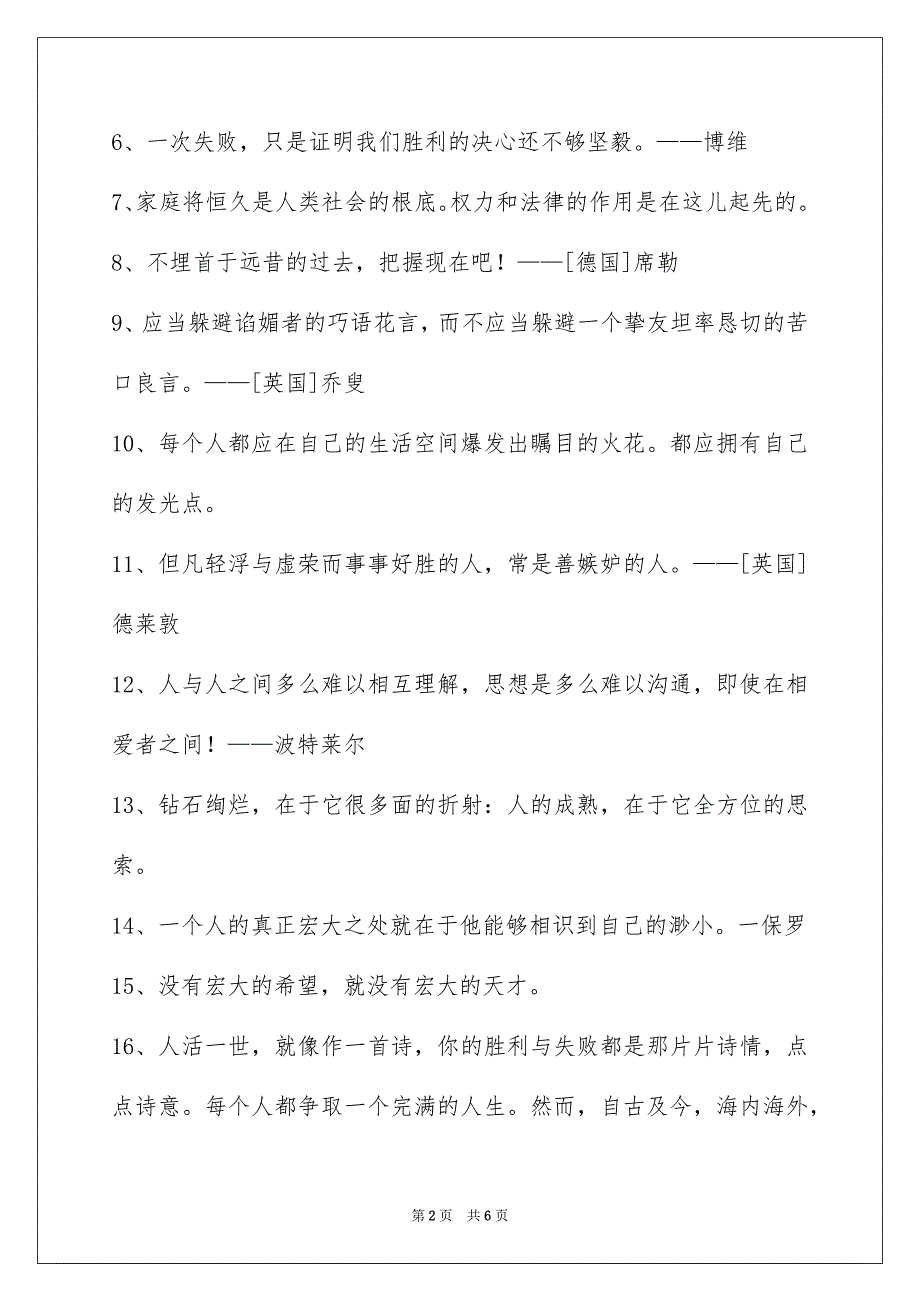 6、一次失败，只是证明我们胜利的决心还不够坚毅。——博维
7、家庭将恒久是人类社会的根底。权力和法律的作用是在这儿起先的。
8、不埋首于远昔的过去，把握现在吧！——[德国]席勒
9、应当躲避谄媚者的巧语花言，而不应当躲避一个挚友坦率恳切的苦
口良言。——[英国]乔叟
10、每个人都应在自己的生活空间爆发出瞩目的火花。都应拥有自己
的发光点。
11、但凡轻浮与虚荣而事事好胜的人，常是善嫉妒的人。——[英国]
德莱敦
12、人与人之间多么难以相互理解，思想是多么难以沟通，即使在相
爱者之间！——波特莱尔
13、钻石绚烂，在于它很多面的折射：人的成熟，在于它全方位的思
索。
14、一个人的真正宏大之处就在于他能够相识到自己的渺小。一保罗
15、没有宏大的希望，就没有宏大的天才。
16、人活一世，就像作一首诗，你的胜利与失败都是那片片诗情，点
点诗意。每个人都争取一个完满的人生。然而，自古及今，海内海外，
第 2 页 共 6 页